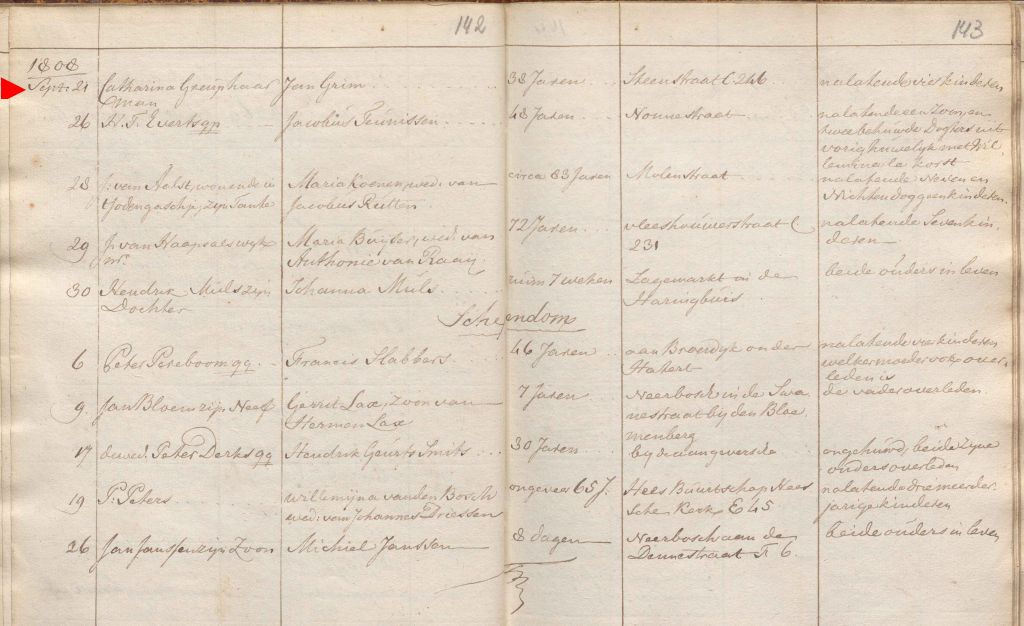 142
143
1808
Sept: 21 Catharina Greuphaar Jan Grim 38 Jaren Steenstraat C 246 nalatende vier kinderen
man
26 H. T. Everts qq Jacobus Teunissen 48 Jaren Nonnestraat nalatende een Zoon, en
twee behuwde Dogters uit
vorig huwelyk met Wil
lemina la Forst
28 J: van Aalst, wonende in Maria Koenen, wed: van circa 83 Jaren Molenstraat nalatende Neven en
Jodengasch, zijn Tante Jacobus Rutten Nichten doggeen kinderen
29 J: van Haapsaelswyk Maria Buijter, wed: van 72 Jaren vleeshouwerstraat C nalatende Seven kin,
Anthonie van Raaij 231 deren
30 Hendrik Muls zijn Johanna Muls ruim 7 weken Lagemarkt in de beide ouders in leven
Dochter Haringbuis
Schependom
6 Peter Pereboom qq. Francis Slabbers 46 Jaren aan Broerdyk onder nalatende vier kinderen
Hatert welker moeder ook over
leden is
9 Jan Bloem zijn Neef Gerrit Lax, Zoon van 7 Jaren Neerbosch in de Swa de vader overleden
Hermen Lax nestraat bij den Bloe
menberg
17 de wed: Peter Derks qq Hendrik Geurts Smits 30 Jaren bij de Langwersche ongehuwd, beide zijne
ouders overleden
19 P: Peters willemijna van den Bosch ongeveer 65 J. Hees Buurtschap Hees nalatende drie meerder
wed: van Johannes Driessen sche Kerk E 45 jarige kinderen
26 Jan Janssen zijn Zoon Michiel Janssen 8 dagen Neerbosch aan de beide ouders in leven
Dennestraat F 6.